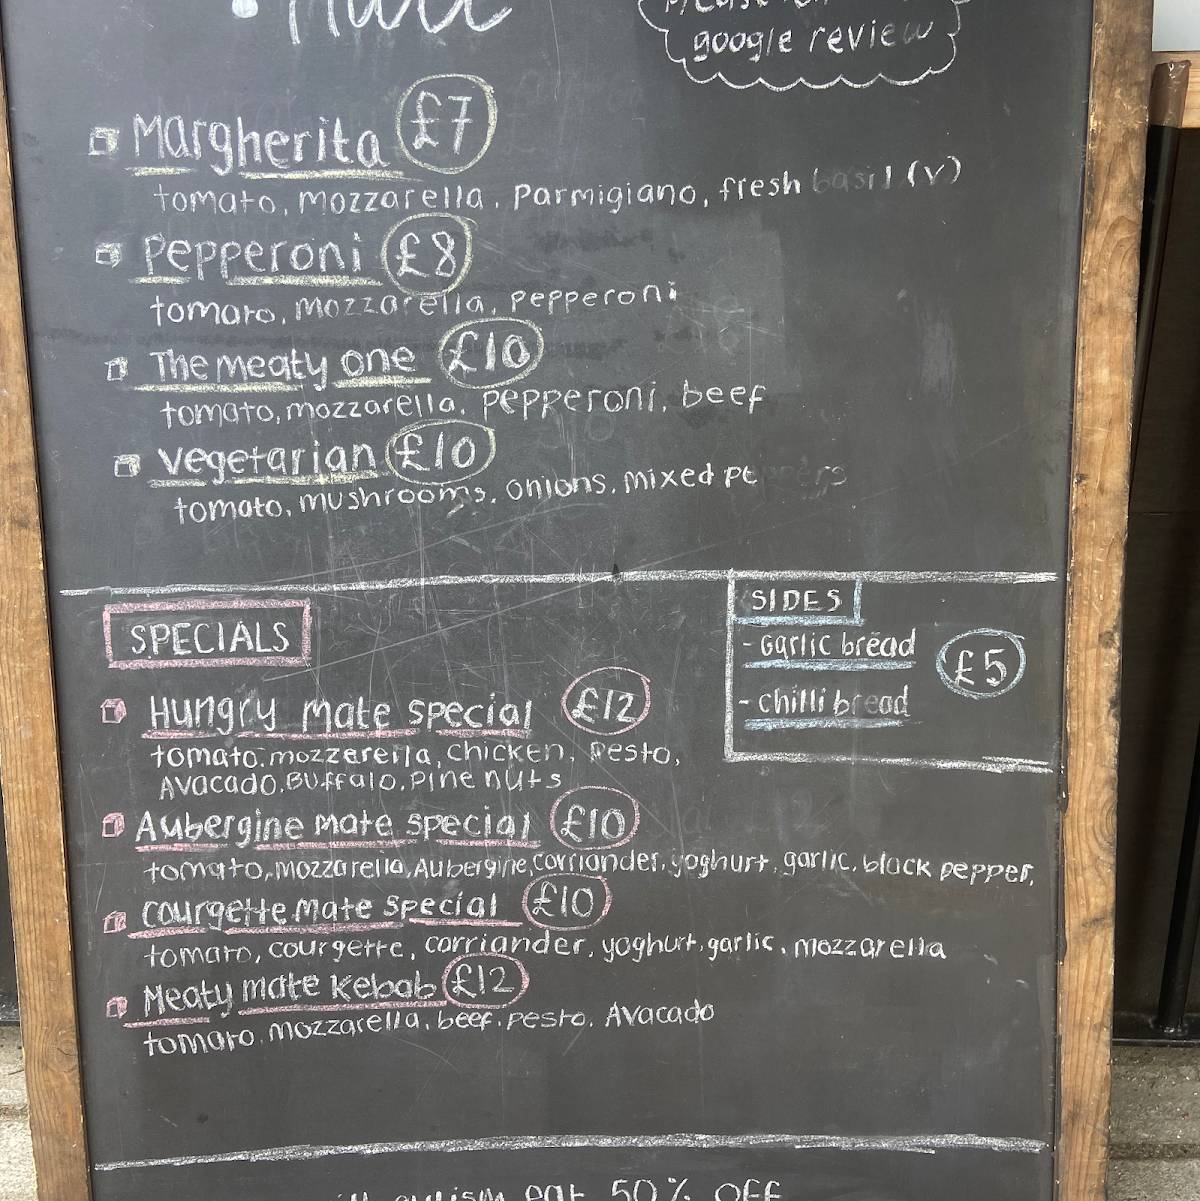 google review
Margherita £7
tomato, mozzarella, Parmigiano, fresh basil (v)
Pepperoni £8
tomato, mozzarella, pepperoni
The meaty one £10
tomato, mozzarella, pepperoni, beef
vegetarian £10
tomato, mushrooms, onions, mixed peppers
SPECIALS
Hungry mate special £12
tomato, mozzerella, chicken, pesto,
Avacado, Buffalo, pine nuts
Aubergine mate special £10
tomato, mozzarella, Aubergine, corriander, yoghurt, garlic, black pepper,
courgette mate special £10
tomato, courgette, corriander, yoghurt, garlic, mozzarella
Meaty mate kebab £12
tomato, mozzarella, beef, pesto, Avacado
SIDES
- Garlic bread
£5
- chilli bread
autism eat 50% OFF